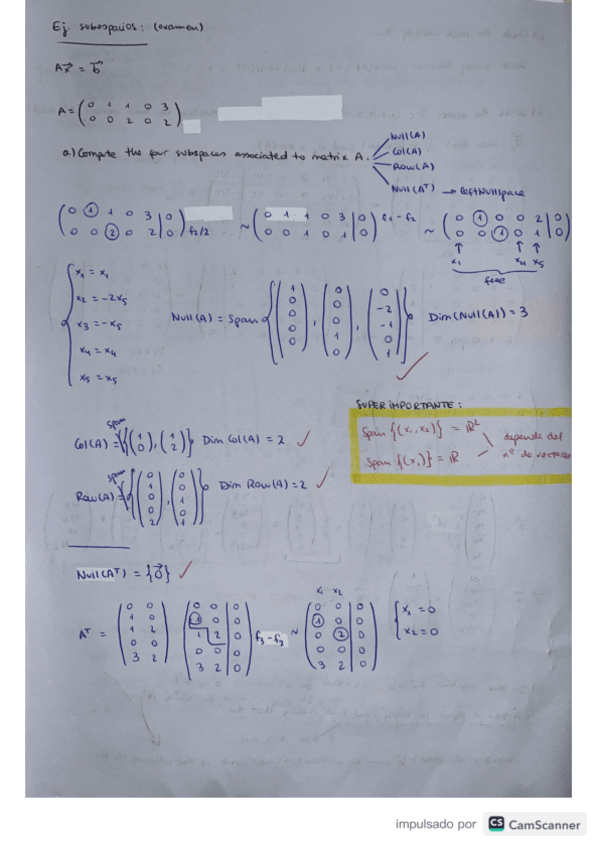 Ej. subespacios: (examen)
Ax⃗ = b⃗
A = ( 0 1 1 0 3
0 0 2 0 2 )
a) Compute the four subspaces associated to matrix A.
Null(A)
Col(A)
Row(A)
Null(Aᵀ) → Left Nullspace
( 0 1 1 0 3 | 0
0 0 2 0 2 | 0 ) f₂/2
~ ( 0 1 1 0 3 | 0
0 0 1 0 1 | 0 ) f₁ - f₂
~ ( 0 1 0 0 2 | 0
0 0 1 0 1 | 0 )
↑ ↑ ↑
x₁ x₄ x₅
free
{ x₁ = x₁
x₂ = -2x₅
x₃ = -x₅
x₄ = x₄
x₅ = x₅
Null(A) = Span { ( 1 0 0 0 0 ), ( 0 0 0 1 0 ), ( 0 -2 -1 0 1 ) } Dim(Null(A)) = 3
SUPER IMPORTANTE:
Span {(x₁, x₂)} = ℝ²
Span {(x₁)} = ℝ
depende del
nº de vectores
span
Col(A) = { ( 1 0 ), ( 1 2 ) } Dim Col(A) = 2
span
Row(A) = { ( 0 1 0 0 2 ), ( 0 0 1 0 1 ) } Dim Row(A) = 2
Null(Aᵀ) = {0⃗}
Aᵀ = ( 0 0
1 0
1 2
0 0
3 2 )
( 0 0 | 0
1 0 | 0
1 2 | 0
0 0 | 0
3 2 | 0 )
~
x₁ x₂
( 0 0 | 0
1 0 | 0
0 2 | 0
0 0 | 0
3 2 | 0 )
{ x₁ = 0
x₂ = 0
impulsado por CS CamScanner